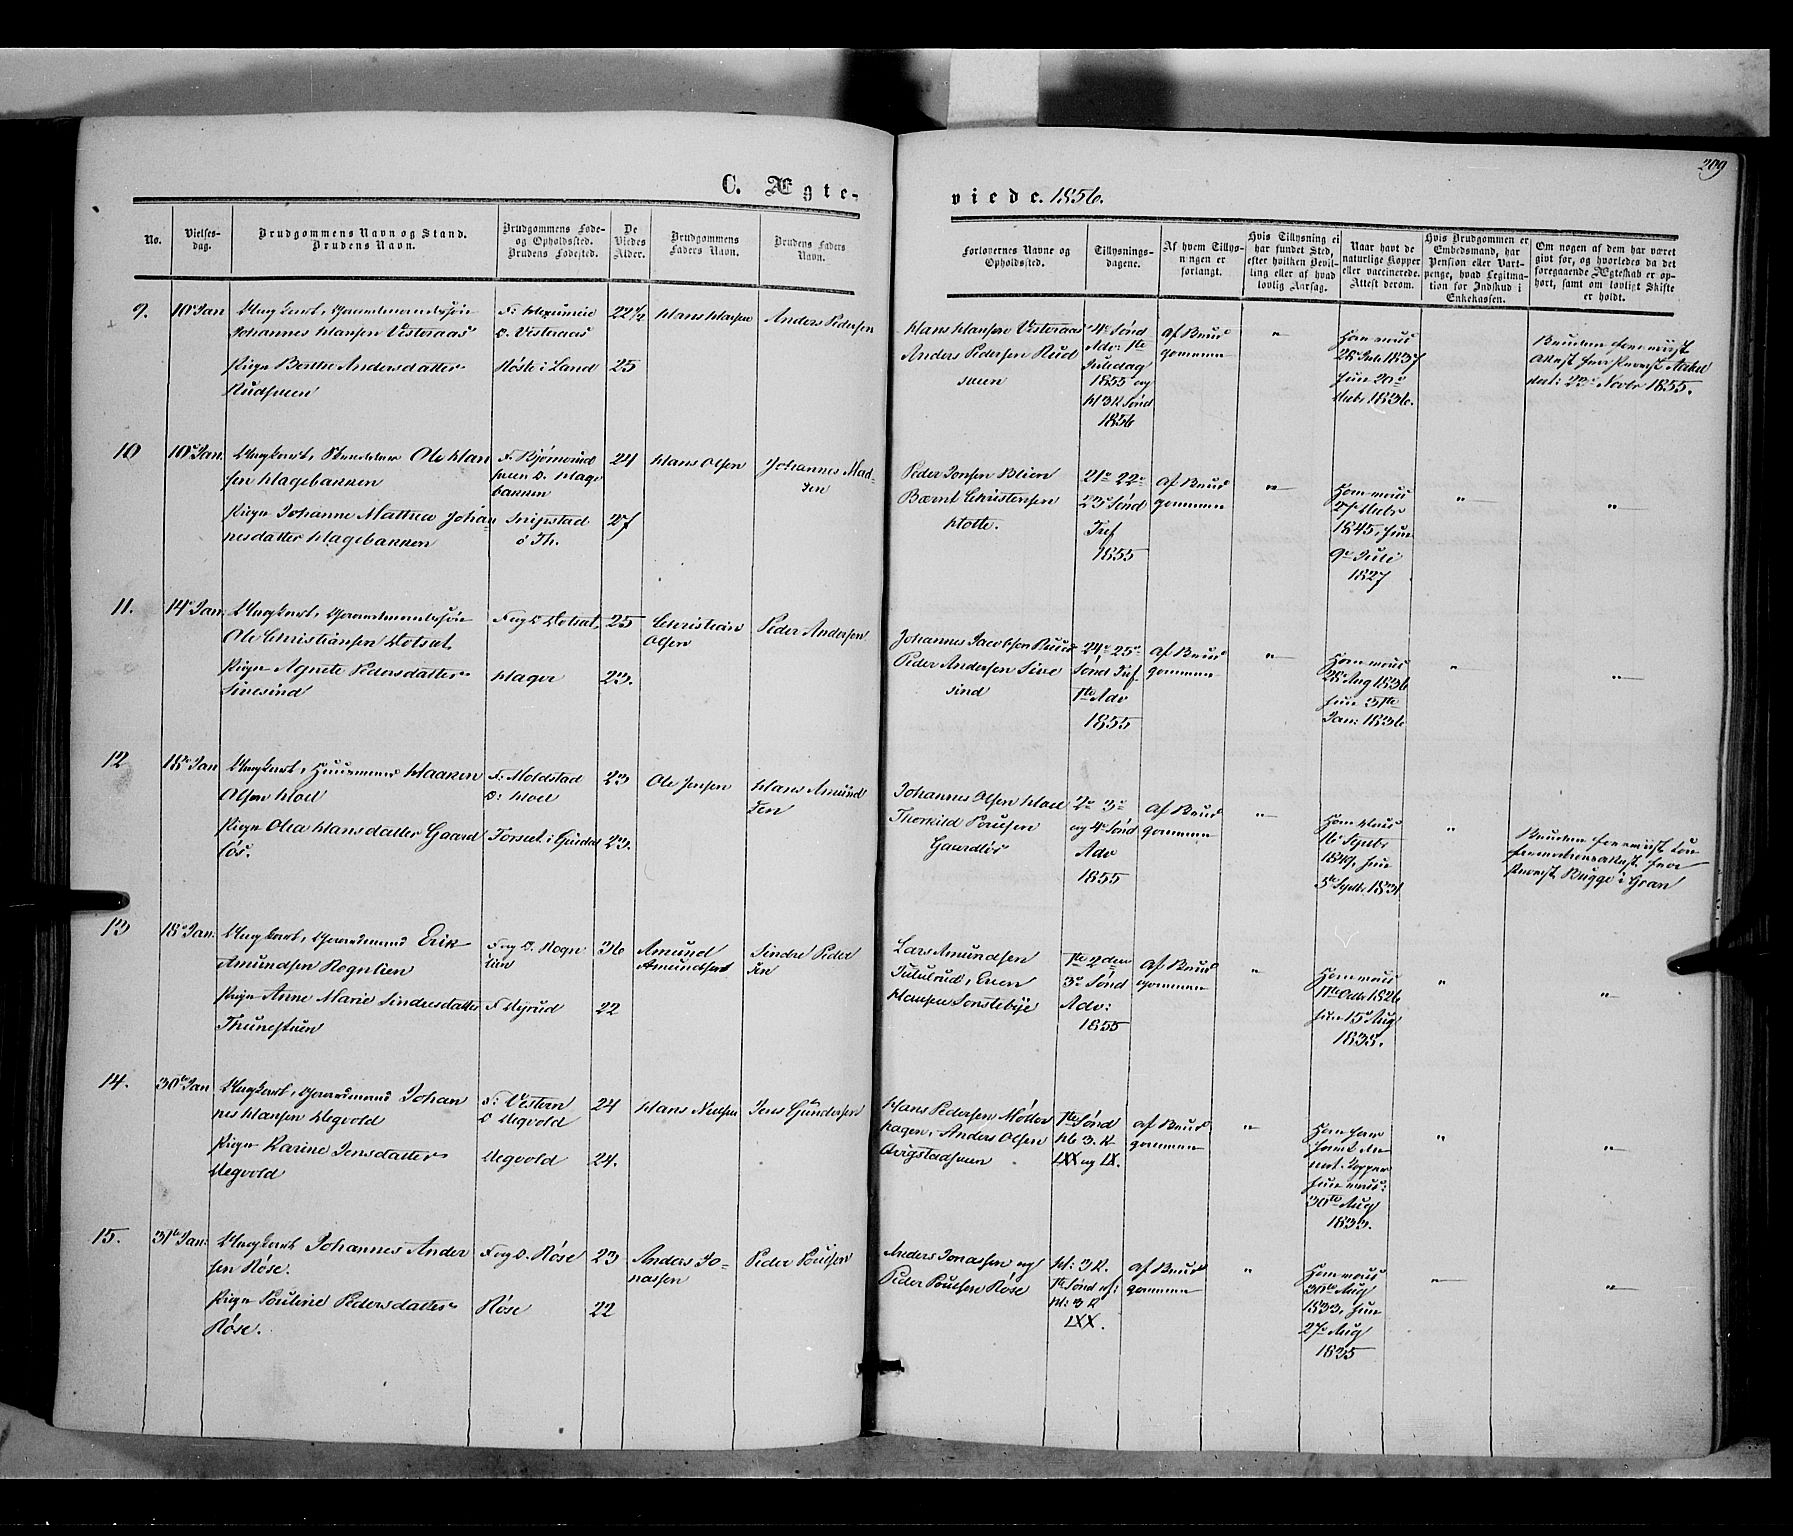 209
C. Ægte-
viede. 1856.
No.
Vielses-
dag.
Brudgommens Navn og Stand.
Brudens Navn.
Brudgommens Føde-
og Opholdssted.
Brudens Fødested.
De
Viedes
Alder.
Brudgommens
Faders Navn.
Brudens Faders
Navn.
Forlovernes Navne og
Opholdssted.
Tillysnings-
dagene.
Af hvem Tillys-
ningen er
forlangt.
Hvis Tillysning ei
har fundet Sted,
efter hvilken Bevil-
ling eller af hvad
lovlig Aarsag.
Naar havt de
naturlige Kopper
eller vaccinerede.
Attest derom.
Hvis Brudgommen er
Embedsmand, har
Pension eller Vart-
penge, hvad Legitima-
tion for Indskud i
Enkekassen.
Om nogen af dem har været
givt før, og hvorledes da det
foregaaende Ægteskab er op-
hørt, samt om lovligt Skifte
er holdt.
9.
10 Jan
Ungkarl, Gaardmandssøn
Johannes Hansen Vesteraas
Pigen Berthe Andersdatter
Rudsveen
O. Vesteraas
Røste i Land
22 1/4
25
Hans Hansen
Anders Pedersen
Hans Hansen Vesteraas
Anders Pedersen Rud
sveen
4e Sønd
Adv: 1te
Juledag
1855 og
H 3 K Sønd
1856
af Brud
gommen
"
Bruden fremviist
Attest fra Provst
dat: 22 Novbr 1855.
10
10 Jan.
Ungkarl, Ole Han
sen Hagebakken
Pigen Johanne Mathea Johan
nesdatter Hagebakken
F. Bjørnerud
sveen O. Hage
bakken
Snipstad
ø Th.
24
27
Hans Olsen
Johannes Mad-
sen
Peder Jonsen Blien
Bærnt Christensen
Hotte.
21e 22e
23e Sønd
Tref
1855
af Brud
gommen
"
1845, hun
9e Juli
1827
"
"
11.
14 Jan.
Ungkarl, Gaardmandssøn
Ole Christiansen
Pigen Agnete Pedersdatter
Sivesind
Hager
25
23.
Christian
Olsen
Peder Andersen
Johannes Jacobsen Ruud
Peder Andersen Sive
sind
24e 25e
Sønd Tref
1te Adv
1855
af Brud
gommen
"
28 Aug 1836
hun 31te
Jan: 1836
"
"
12
18 Jan
Ungkarl, Huusmand Haaken
Olsen Hoel
Pigen Olea Hansdatter Gaard
løs.
F. Moldstad
O: Hoel
23
23.
Ole Jensen
Hans Amund
sen
Johannes Olsen Hoel
Thorkild Poulsen
Gaardløs
2e 3e
og 4e Sønd
Adv
1855
af Brud
gommen
"
16 Septbr
hun
5te Septbr 1831
"
Bruden fremviist Con
firmationsattest fra
Provst Bugge i Gran
13
18 Jan.
Ungkarl, Gaardmand Erik
Amundsen Rognlien
Pigen Anne Marie Sindresdatter
Thunestuen
F. og O. Rogn
lien
F. Myrud
36
22
Amund
Amundsen
Sindre Peder
sen
Lars Amundsen
Tuterud, Even
Hansen Sønsteby
1te 2den
3e Sønd
Adv:
1855
af Brud
gommen
"
17de Octb 1826
hun 15e Aug
1835.
"
"
14.
30te Jan
Ungkarl, Gaardmand Johan
nes Hansen Uegvold
Pigen Karine Jensdatter
Uegvold
F: Vestern
O Uegvold
Uegvold
24
24.
Hans Nielsen
Jens Gundersen
Hans Pedersen Møller
hagen, Anders Olsen
1te Sønd
H 3. K
LXX og LX.
af Brud
gommen
"
30te Aug
"
"
15.
31te Jan.
Ungkarl Johannes Ander
sen Røse.
Pigen Pouline Pedersdatter
Røse.
F. og O. Røse
Røse
23
22
Anders Jo=
nassen
Peder Poulsen
Anders Jonassen og
Peder Poulsen Røse
H: 3 K.
1te Sønd ef:
H: 3 K
LXX.
af Brud
gommen
"
30te Aug
1833, hun
27e Aug
1835
"
"